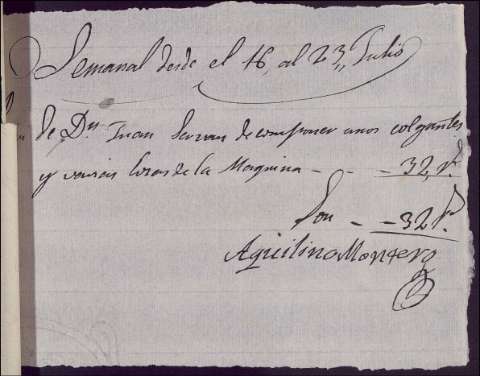 Semanal desde el 16, al 23,, Julio
de Dn. Juan Servan de componer unos colgantes
y varias cosas de la Maquina - - - 32, rs.
Son - - 32 rs.
Aquilino Montero